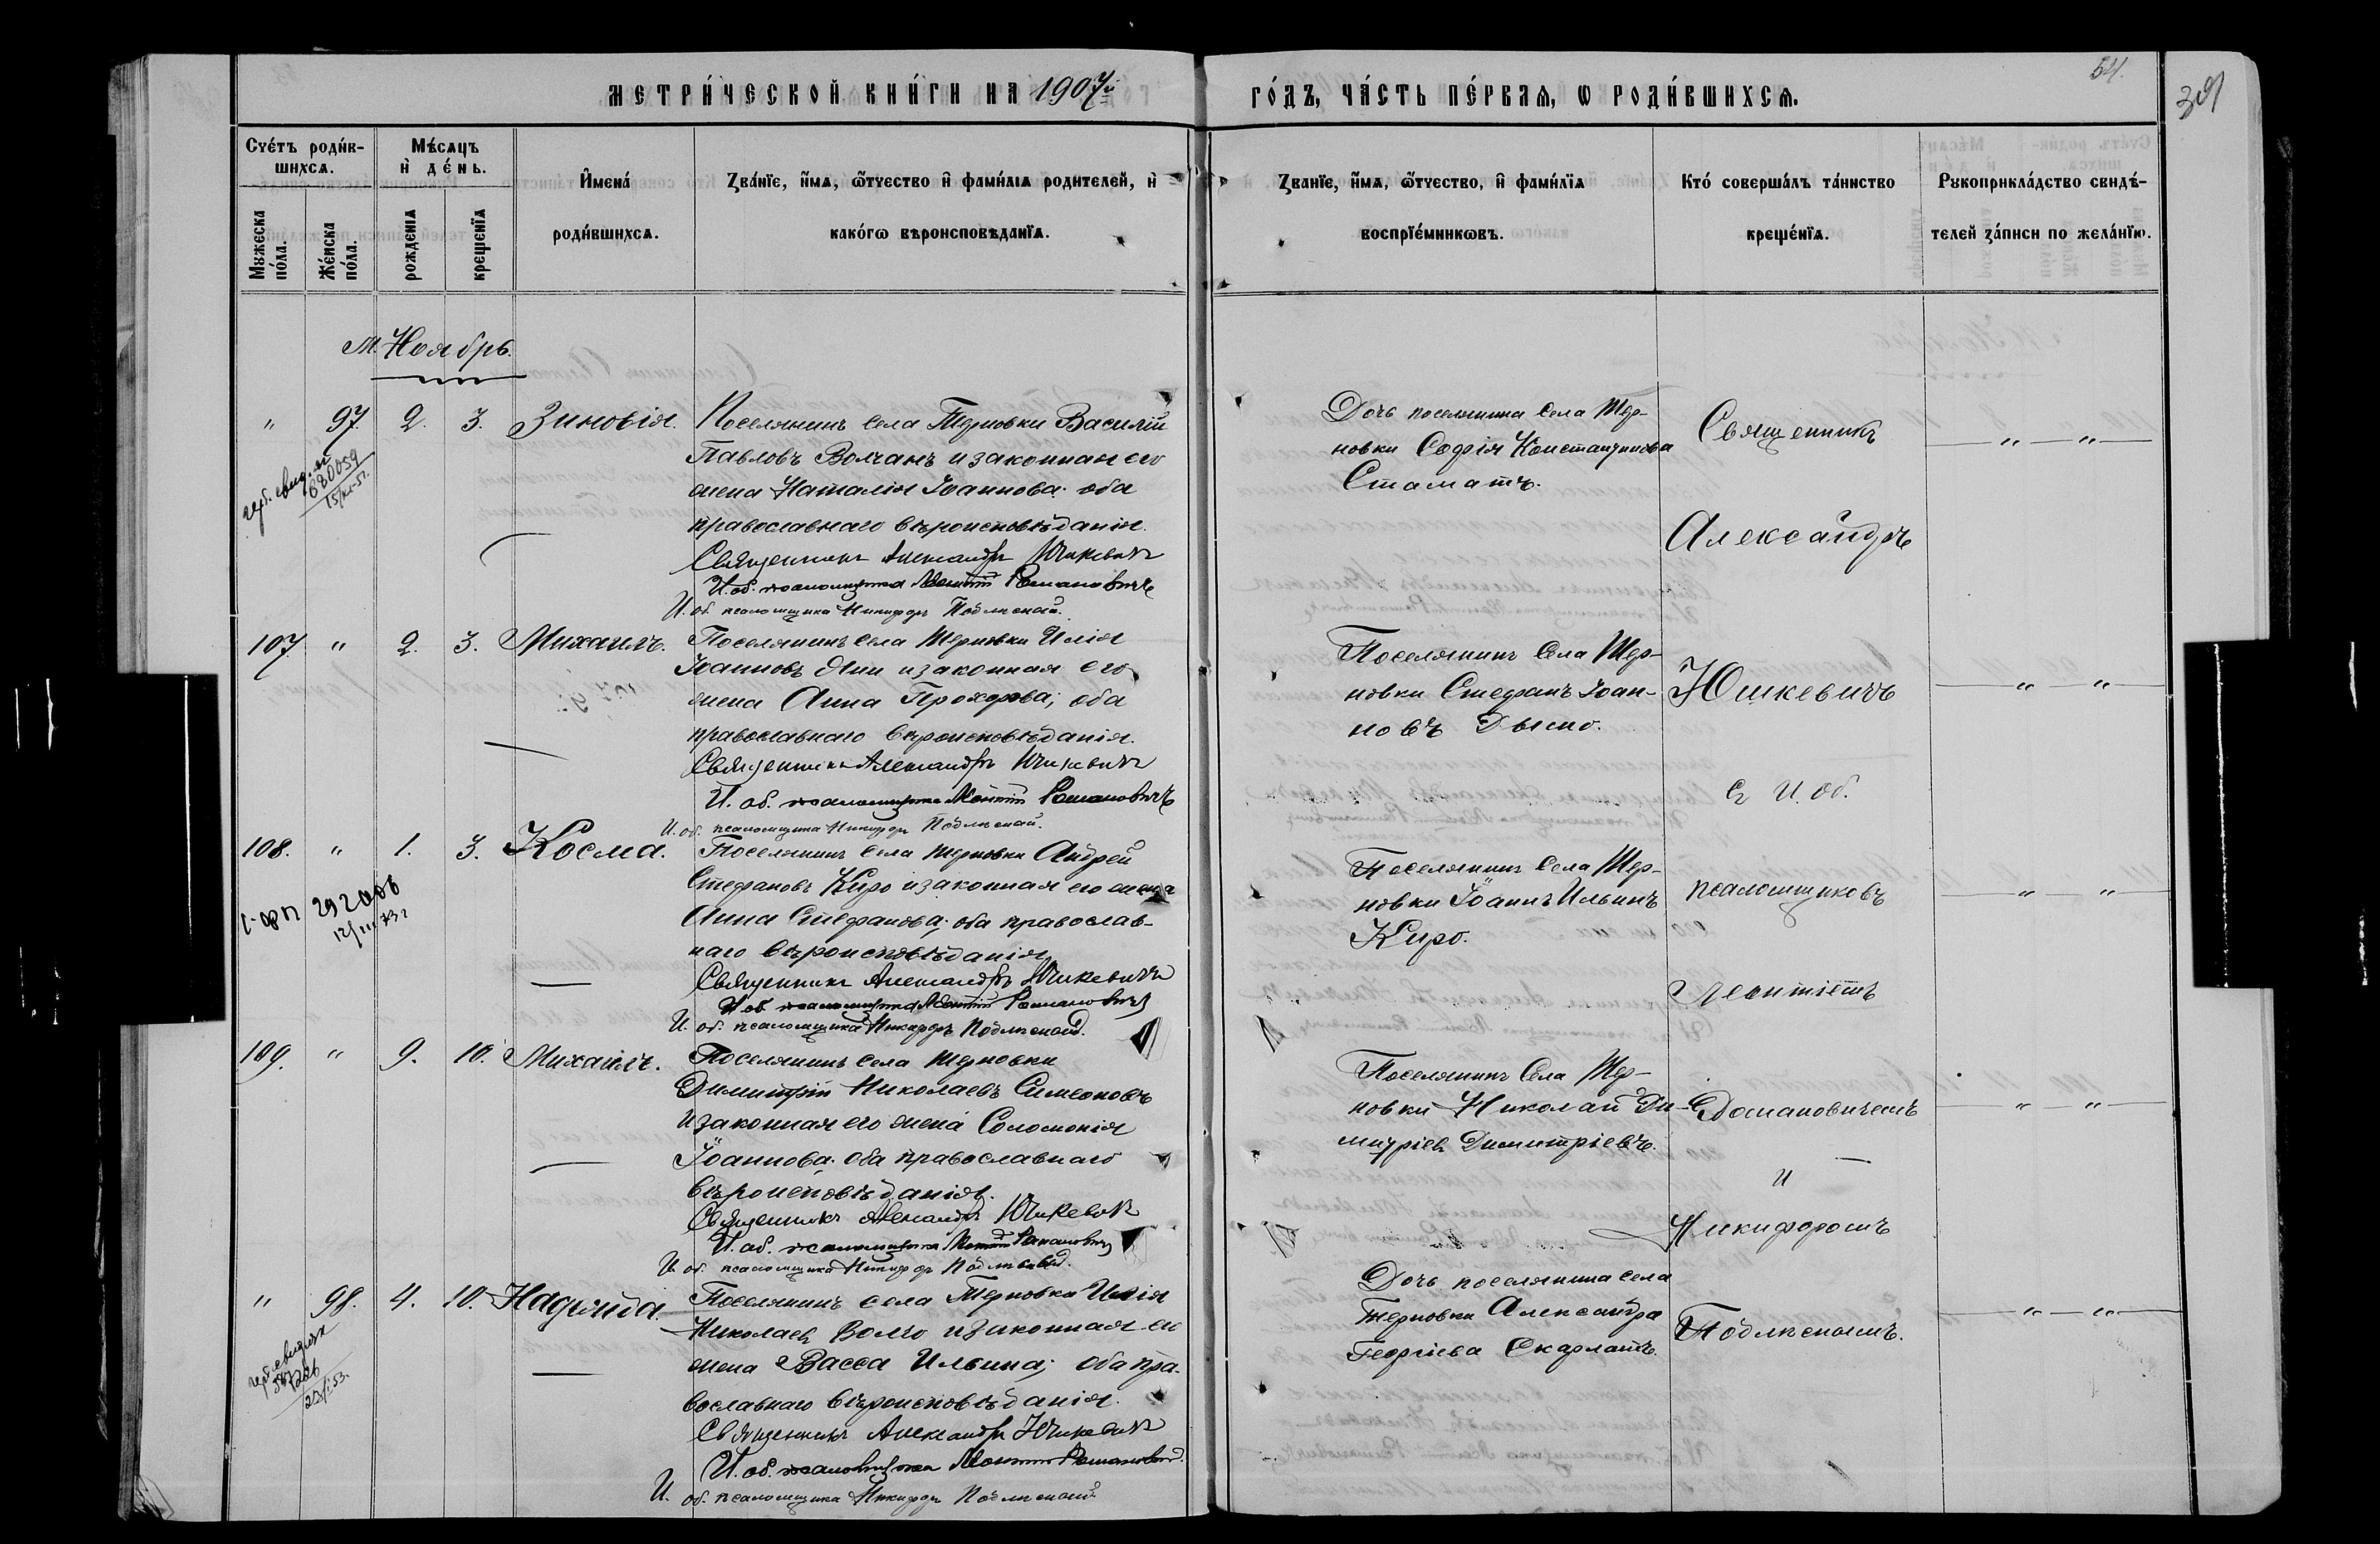 МЕТРИ́ЧЕСКОЙ КНИ́ГИ НА 1907й
ГО́ДЪ, ЧА́СТЬ ПЕ́РВАѦ, Ѡ РОДИ́ВШИХСѦ.
54.
Сче́тъ роди́в-
шихсѧ.
Мѣ́сѧцъ
и҆ де́нь.
Мꙋжеска
по́ла.
Же́нска
по́ла.
рожденїѧ
крещенїѧ
И҆мена́
роди́вшихсѧ.
Ꙁва́нїе, и҆́мѧ, ѻ҆́тчество и҆ фами́лїѧ родителей, и҆
како́гѡ вѣроисповѣданїѧ.
Ꙁванїе, и҆́мѧ, ѻ҆́тчество, и҆ фами́лїѧ
воспрїе́мникѡвъ.
Кто́ соверша́лъ та́инство
креще́нїѧ.
Рꙋкоприкла́дство свидѣ́-
телей ꙁа́писи по жела́нїю.
М. Ноябрь.
" 97. 2. 3. Зиновія.
Поселянинъ села Терновки Василій
Павловъ Волчанъ и законная его
жена Наталія Іоаннова; оба
православнаго вѣроисповѣданія.
Священникъ Александръ Юшкевичъ
И. об. псаломщика Леонтій Романовичъ
И. об. псаломщика Никифоръ Подлѣсный.
Дочь поселянина села Тер-
новки Софія Константинова
Стаматъ.
Священникъ
Александръ
— " — " —
107 " 2. 3. Михаилъ.
Поселянинъ села Терновки Илія
Іоанновъ Яни и законная его
жена Анна Прохорова; оба
православнаго вѣроисповѣданія.
Священникъ Александръ Юшкевичъ
И. об. псаломщика Леонтій Романовичъ
И. об. псаломщика Никифоръ Подлѣсный.
Поселянинъ села Тер-
новки Стефанъ Іоан-
новъ Дымо.
Юшкевичъ
съ И. об.
— " — " —
108. " 1. 3. Косма.
Поселянинъ села Терновки Андрей
Стефановъ Киро и законная его жена
Анна Стефанова; оба православ-
наго вѣроисповѣданія
Священникъ Александръ Юшкевичъ
И об псаломщика Леонтій Романовичъ
И. об. псаломщика Никифоръ Подлѣсный.
Поселянинъ села Тер-
новки Іоаннъ Ильинъ
Киро.
псаломщиковъ
Леонтіемъ
— " — " —
109. " 9. 10. Михаилъ.
Поселянинъ села Терновки
Димитрій Николаевъ Симеоновъ
и законная его жена Соломонія
Іоаннова; оба православнаго
вѣроисповѣданія.
Священникъ Александръ Юшкевичъ
И. об. псаломщика Леонтій Романовичъ
И. об. псаломщика Никифоръ Подлѣсный.
Поселянинъ села Тер-
новки Николай Ди-
митріевъ Димитріевъ.
Романовичемъ
и
Никифоромъ
— " — " —
" 98. 4. 10. Надежда.
Поселянинъ села Терновки Илія
Николаевъ Волчо и законная его
жена Васса Ильина; оба пра-
вославнаго вѣроисповѣданія.
Священникъ Александръ Юшкевичъ
И. об. псаломщика Леонтій Романовичъ.
И. об. псаломщика Никифоръ Подлѣсный.
Дочь поселянина села
Терновки Александра
Георгіева Скарлатъ.
Подлѣснымъ.
— " — " —